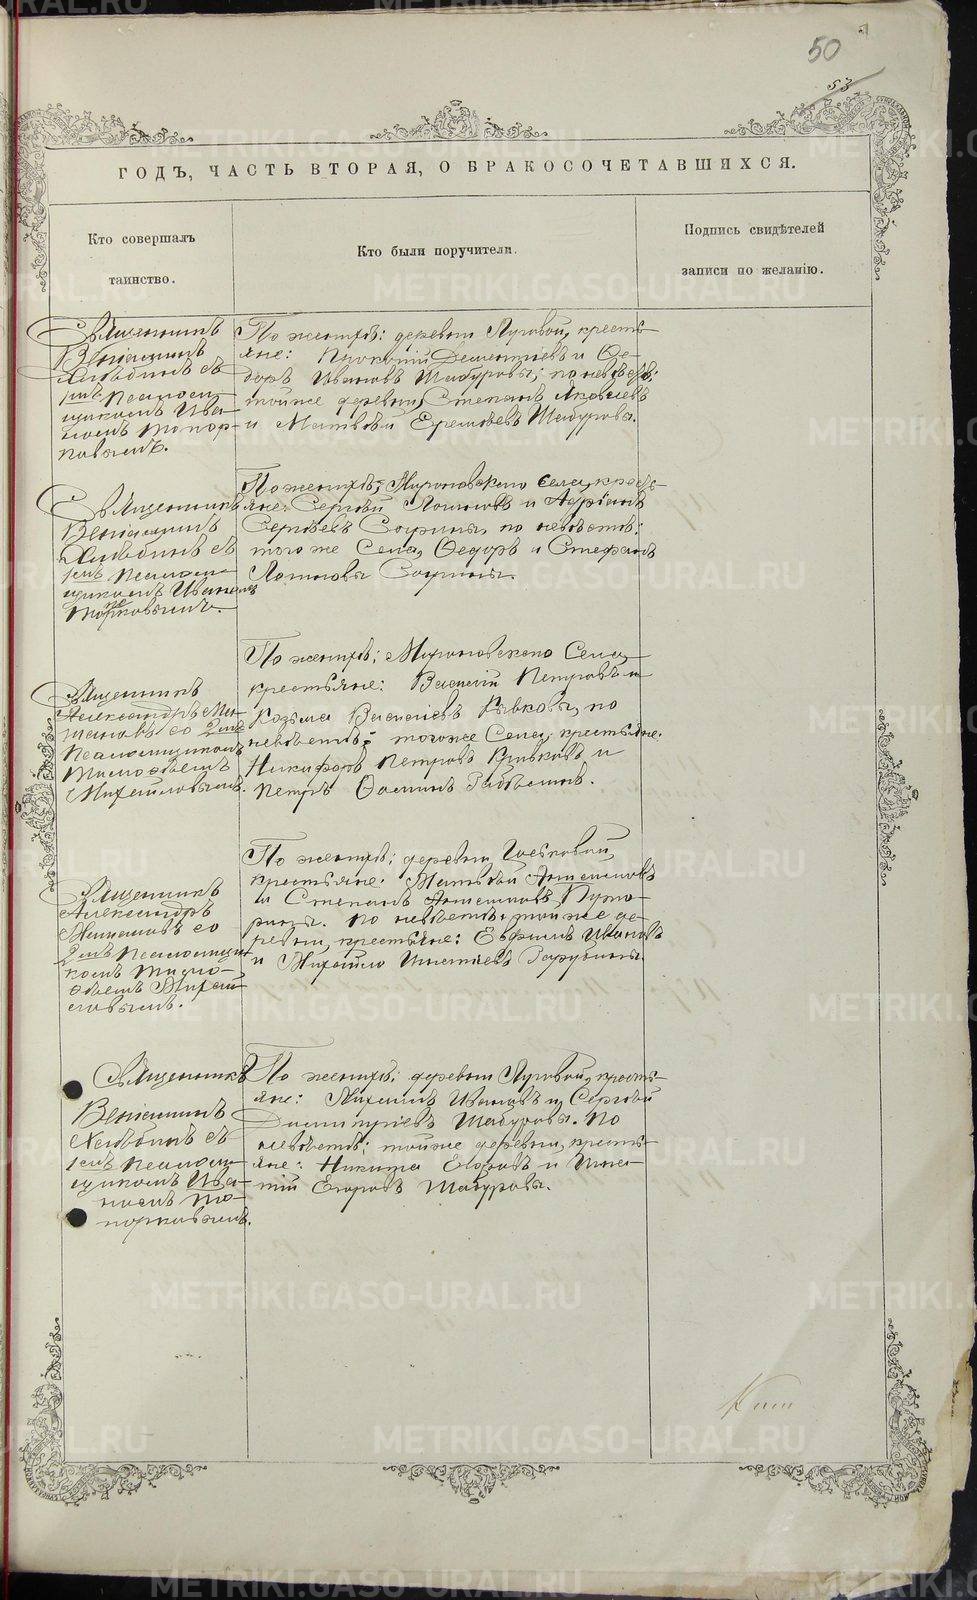 50
53
ГОДЪ, ЧАСТЬ ВТОРАЯ, О БРАКОСОЧЕТАВШИХСЯ.
Кто совершалъ
таинство.
Кто были поручители.
Подпись свидѣтелей
записи по желанію.
Священникъ
Веніаминъ
Хлѣбинъ съ
1мъ псалом-
щикомъ Ива-
номъ Топор-
ковымъ.
По женихѣ: деревни Луговой, кресть-
яне: Прокопій Дементіевъ и Ѳе-
доръ Ивановъ Шабуровы; по невѣстѣ:
той же деревни, Степанъ Яковлевъ
и Матвѣй Ермолаевъ Шабуровы.
Священникъ
Веніаминъ
Хлѣбинъ съ
1мъ псалом-
щикомъ Иваномъ
Топорковымъ.
По женихѣ: Мироновскаго села, кресть-
яне: Сергѣй Логиновъ и Адріанъ
Сергѣевъ Сохрины, по невѣстѣ:
того же села, Ѳедоръ и Стефанъ
Логиновы Сохрины.
Священникъ
Александръ
со 2мъ
псаломщикомъ
Тимоѳеемъ
Михайловымъ.
По женихѣ: Мироновскаго села,
крестьяне: Василій Петровъ и
Козьма Васильевъ Кривковы, по
невѣстѣ: того же села, крестьяне:
Никифоръ Петровъ Кривковъ и
Петръ Ѳоминъ
Священникъ
Александръ
со
2мъ псаломщи-
комъ Тимо-
ѳеемъ Михай-
ловымъ.
По женихѣ: деревни
крестьяне: Матвѣй Антоновъ
и Степанъ
по невѣстѣ: той же де-
ревни, крестьяне: Евфимъ Ивановъ
и Михайло Игнатіевъ
Священникъ
Веніаминъ
Хлѣбинъ съ
1мъ псалом-
щикомъ Ива-
номъ То-
порковымъ.
По женихѣ: деревни Луговой, кресть-
яне: Михаилъ Ивановъ и Сергѣй
Димитріевъ Шабуровы. По
невѣстѣ: той же деревни, кресть-
яне: Никита Егоровъ и Игна-
тій Егоровъ Шабуровы.
METRIKI.GASO-URAL.RU